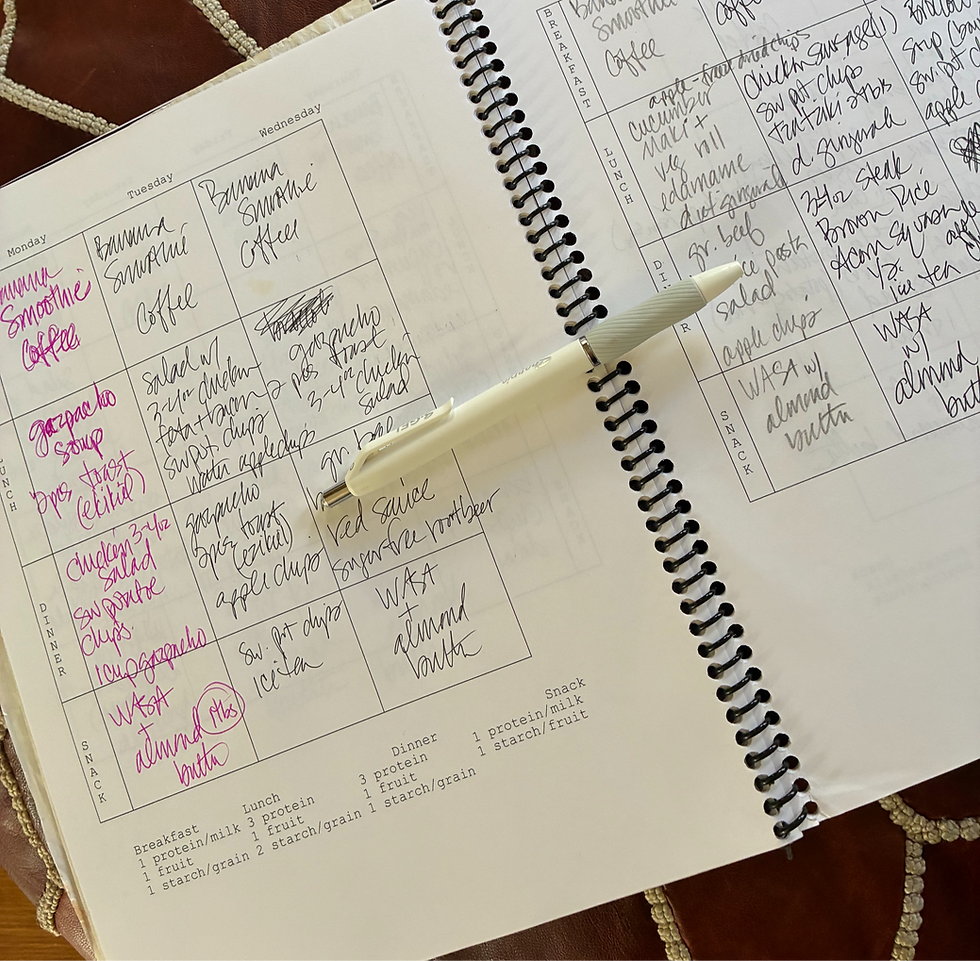 Monday
Tuesday
Wednesday
Smoothie
Coffee
Banana
Smoothie
Coffee
Banana
Smoothie
Coffee
LUNCH
gazpacho
soup
2 pcs toast
(ekikiel)
salad w/
3-4oz chicken
feta + bacon
sw pot chips
water apple chips
gazpacho
2 pcs toast
3-4oz chicken
salad
DINNER
chicken 3-4oz
salad
sw potatoe
chips
1 cup gazpacho
gazpacho
2 pcs toast
(ezikiel)
apple chips
gr.
red sauce
sugar free rootbeer
SNACK
WASA
+
almond 1tbs
buttn
sw. pot chips
ice tea
WASA
+
almond
buttn
Breakfast
1 protein/milk
1 fruit
1 starch/grain
Lunch
3 protein
1 fruit
2 starch/grain
Dinner
3 protein
1 fruit
1 starch/grain
Snack
1 protein/milk
1 starch/fruit
BREAKFAST
Smoothie
Coffee
Coffee
LUNCH
apple - freeze dried chips
cucumber
maki +
veg roll
edamame
diet gingerale
chicken sausage (1)
sw pot chips
tzatziki 2tbs
d. gingerale
sw. pot
apple
gr. beef
rice pasta
salad
apple chips
3-4oz steak
Brown Rice
Acorn Squash
1/2
ice tea
SNACK
WASA w/
almond
buttn
WASA
w/
almond